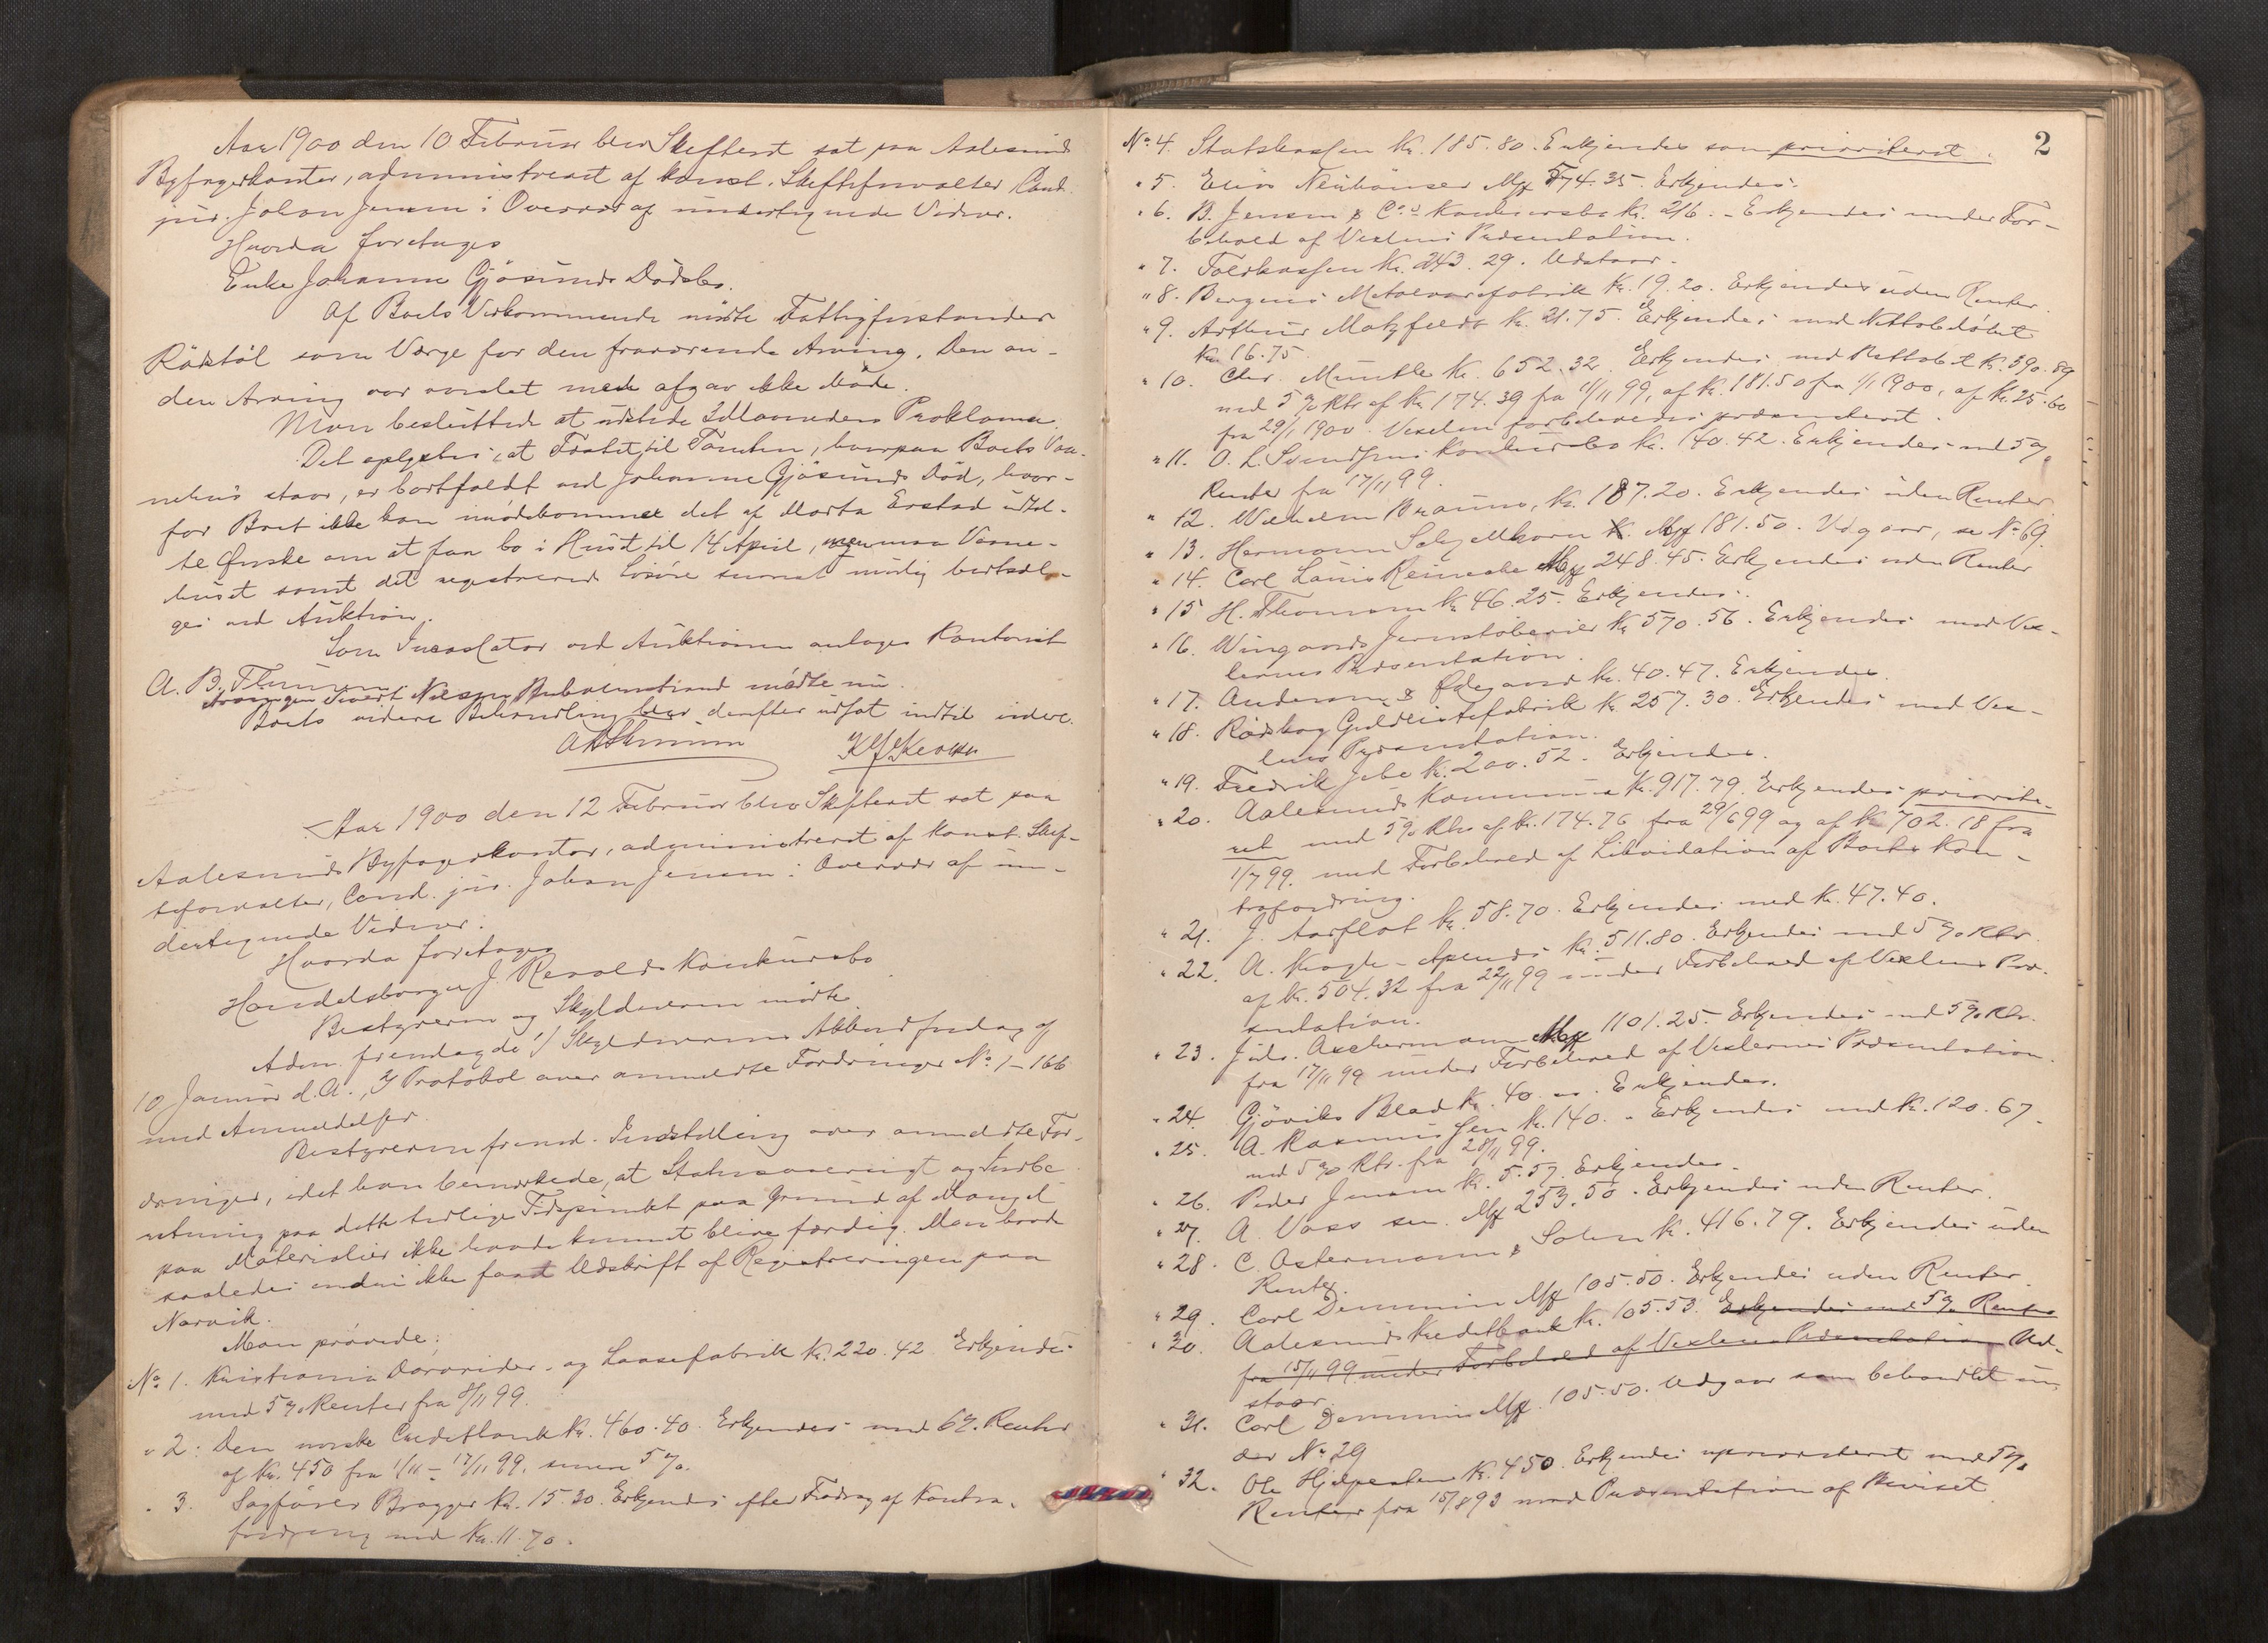 Aar 1900 den 10 Februar blev Skifteret sat paa Aalesunds
Byfogedkontor, administreret af konst. Skifteforvalter Cand.
jur. Johan Jensen i Overvær af undertegnede Vidner.
Hvorda foretoges
Enke Johanne Gjøsunds Dødsbo.
Af Boets Vedkommende mødte Fattigforstander
Rødstøl som Værge for den fraværende Arving. Den an-
den Arving var varslet men afgav ikke Møde.
Man besluttede at udstede 3 Maaneders Proklama.
Det oplystes, at Fæstet til Tomten, hvorpaa Boets Vaa-
nehus staar, er bortfaldt ved Johanne Gjøsunds Død, hvor-
for Boet ikke kan imødekomme det af Marta Erstad udtal-
te Ønske om at faa bo i Huset til 14 April, men maa Vaane-
huset samt det registrerede Løsøre snarest mulig bortsæl-
ges ved Auktion.
Som Incassator ved Auktionen antages Kontorist
A. B. Thunem
Arvingen Sivert Nielsen mødte nu.
Boets videre Behandling blev derefter udsat indtil videre.
Aar 1900 den 12 Februar blev Skifteret sat paa
Aalesunds Byfogedkontor, administreret af konst. Skif-
teforvalter, Cand. jur. Johan Jensen i Overvær af un-
dertegnede Vidner.
Hvorda foretoges
Handelsborger J. Revolds Konkursbo
Bestyreren og Skyldneren mødte.
Adm. fremlagde 1/ Skyldnerens Akkordforslag af
10 Januar d.A., 2/ Protokol over anmeldte Fordringer No 1-166
med Anmeldelser.
Bestyreren freml. Indstilling over anmeldte For-
dringer, idet han bemærkede, at Statusoversigt og Indbe-
retning paa dette tidlige Tidspunkt paa Grund af Mangel
paa Materialier ikke havde kunnet blive færdig. Man havde
saaledes endnu ikke faaet Udskrift af Registreringen paa
Narvik.
Man prøvede:
No 1. Kristiania Dørvrider- og Laasefabrik Kr. 220.42 Erkjendes
med 5% Renter fra 8/11 99.
" 2. Den norske Creditbank Kr. 460.40 Erkjendes med 6% Renter
af Kr. 450 fra 1/11 - 17/11 99. senere 5%.
" 3. Sagfører Brøgger Kr. 15.30. Erkjendes efter Fradrag af Kontra-
fordring med Kr. 11.70.
2
No 4. Statskassen Kr. 185.80. Erkjendes som prioriteret.
" 5. Elias Neuhäuser Mk 74.35. Erkjendes.
" 6. B. Jensen & Co.s Konkursbo Kr. 216. - Erkjendes under For-
behold af Vexlens Præsentation.
" 7. Toldkassen Kr. 243.29. Udstaar.
" 8. Bergens Metalvarefabrik Kr. 19.20. Erkjendes uden Renter.
" 9. Arthur Motzfeldt Kr. 21.75. Erkjendes med Nettobeløbet
Kr. 16.75.
" 10. Chr. Munthe Kr. 652.32. Erkjendes med Nettobel. Kr. 590.89
med 5% Rtr. af Kr. 174.39 fra 11/11 99, af Kr. 181.50 fra 1/1 1900, af Kr. 25.60
fra 29/1 1900. Vexlen forbeholdes præsenteret.
" 11. O. L. Svendsens Konkursbo Kr. 140.42. Erkjendes med 5%
Renter fra 17/11 99.
" 12. Wilhelm Brauns, Kr. 187.20. Erkjendes uden Renter.
" 13. Hermann Schjelhorn Mk 181.50. Udgaar, se No 69.
" 14. Carl Louis Reinecke Mk 248.45. Erkjendes uden Renter
" 15 H. Thomsen Kr. 46.25. Erkjendes.
" 16. Wingaards Jernstøberier Kr. 570.56. Erkjendes mod Vex-
lernes Præsentation.
" 17. Andersen & Ødegaard Kr. 40.47. Erkjendes.
" 18. Rødskog Guldlistefabrik Kr. 257.30. Erkjendes mod Vex-
lens Præsentation.
" 19. Fredrik Jebe Kr. 200.52. Erkjendes.
" 20. Aalesunds Kommune Kr. 917.79. Erkjendes priorite-
ret med 5% Rtr. af Kr. 174.76 fra 29/6 99 og af Kr. 702.18 fra
1/7 99. med Forbehold af Likvidation af Boets Kon-
trafordring.
" 21. J. Aarflot Kr. 58.70. Erkjendes med Kr. 47.40.
" 22. A. Krogh-Apenes Kr. 511.80. Erkjendes med 5% Rtr.
af Kr. 504.32 fra 22/11 99 under Forbehold af Vexlens Præ-
sentation.
" 23. Juls. Aschermann Mk 1101.25. Erkjendes med 5% Rtr.
fra 17/11 99 under Forbehold af Vexlernes Præsentation.
" 24. Gjøviks Blad Kr. 40.00. Erkjendes.
" 25. A. Rasmussen Kr. 140. - Erkjendes med Kr. 120.67
med 5% Rtr. fra 28/11 99.
" 26. Peder Jensen Kr. 5.57. Erkjendes.
" 27. A. Voss sen. Mk 253.50. Erkjendes uden Renter.
" 28. C. Ostermann & Sohn Kr. 416.79. Erkjendes uden
Renter.
" 29. Carl Demmin Mk 105.50. Erkjendes uden Renter.
" 30. Aalesunds Kreditbank Kr. 105.53. Erkjendes med 5% Renter
fra 15/11 99 under Forbehold af Vexlens Præsentation Ud-
staar.
" 31. Carl Demmin Mk. 105.50. Udgaar som behandlet un-
der No 29
" 32. Ole Hjelpesten Kr. 450. Erkjendes uprioriteret med 5%
Renter fra 15/8 93 mod Præsentation af Beviset